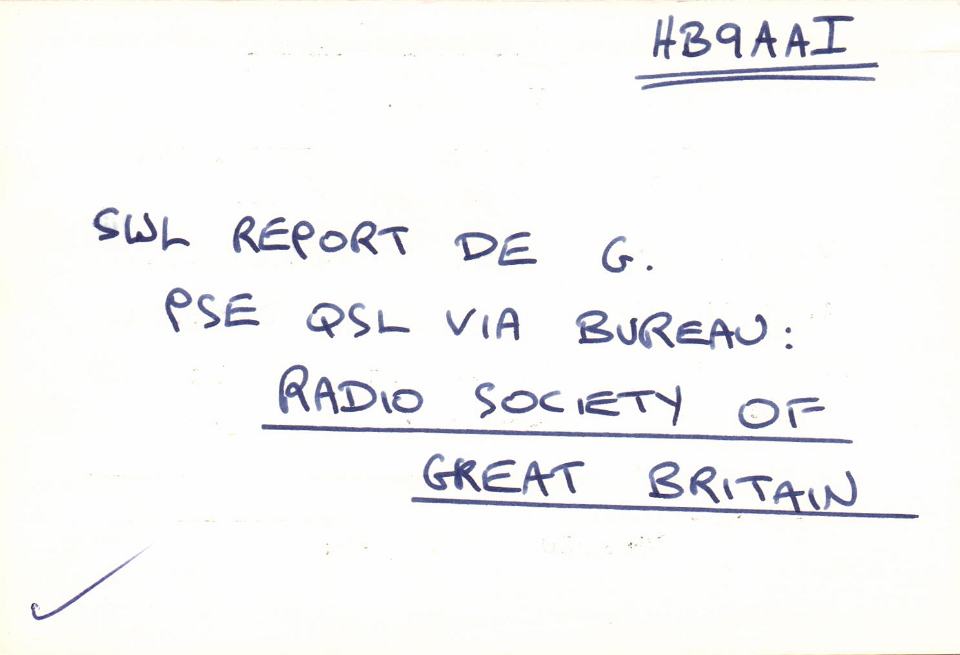 HB9AAI
SWL REPORT DE G.
PSE QSL VIA BUREAU:
RADIO SOCIETY OF
GREAT BRITAIN